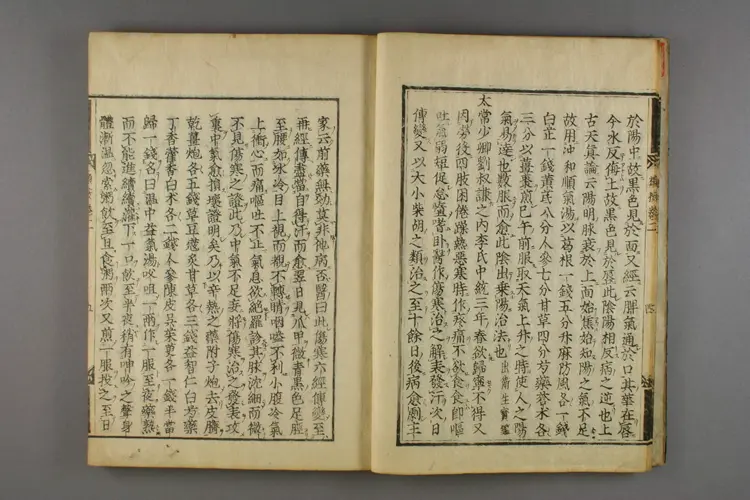 於陽中故黑色見於面又經云脾氣通於口其華在唇
今水反侮土故黑色見於唇此陰陽相反病之逆也上
古天真論云陽明脉衰於上面始焦始知陽之氣不足
故用冲和順氣湯以葛根一錢五分升麻防風各一錢
白芷一錢黃芪八分人參七分甘草四分芍藥蒼朮各
三分以薑棗煎巳午前服取天氣上升之時使人之陽
氣易達也數服而愈此陰出乗陽治法也 出衛生寶鑑
太常少卿劉叔謙之内李氏中統三年春欲歸寧不得又
因勞後四肢困倦躁熱惡寒時作疼痛不欲食食即嘔
吐氣弱短促怠惰嗜卧醫作傷寒治之解表發汗次日
傳變又以大小柴胡之類治之至十餘日後病愈劇主
家云前藥無効莫非他病否醫曰此傷寒六經傳變至
再經傳盡當自得汗而愈翌日見爪甲微青黑色足脛
至腰如冰冷目上視而覩不轉睛咽嗌不利小腹冷氣
上衝心而痛嘔吐不止氣息欲絶羅診其脉沈細而微
不見傷寒之證此乃中氣不足妄將傷寒治之發表攻
裏中氣愈損壞證明矣乃以辛熱之藥附子炮去皮臍
乾薑炮各五錢草豆蔻炙甘草各三錢益智仁白芍藥
丁香藿香白朮各二錢人參陳皮吳茱萸各一錢半當
歸一錢名曰温中益氣湯㕮咀一兩作一服至夜藥熟
而不能進續續灌下一口飲至半夜稍有呻吟之聲身
體漸温忽索粥飲至旦食粥兩次又煎一服投之至日